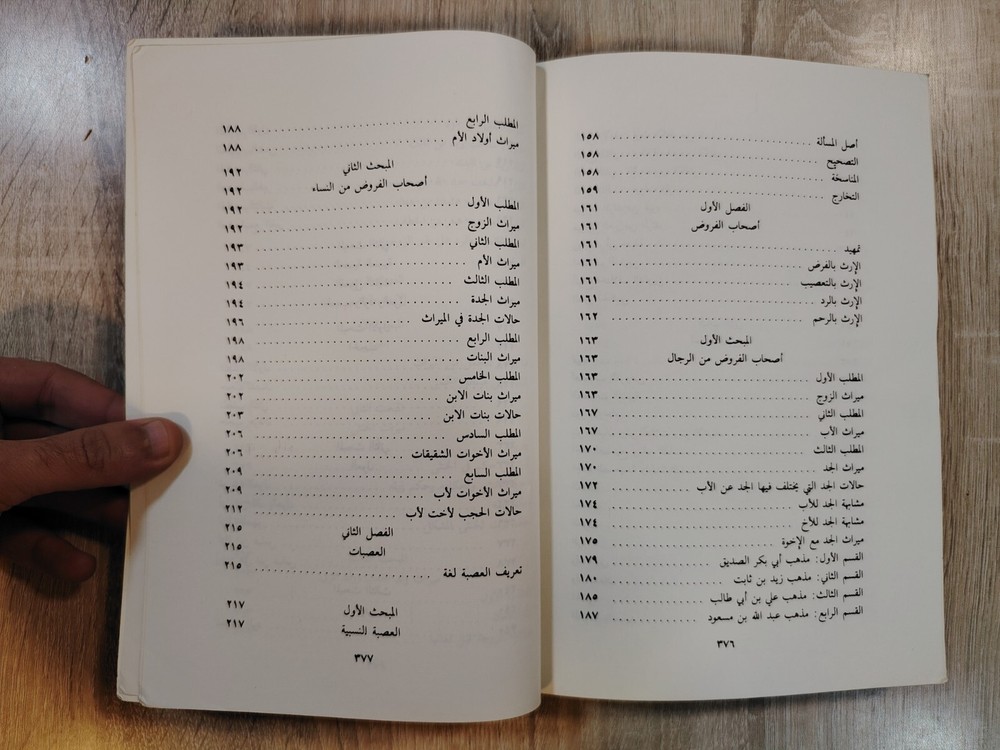 أصل المسألة ١٥٨
التصحيح ١٥٨
المناسخة ١٥٨
التخارج ١٥٩
الفصل الأول ١٦١
أصحاب الفروض ١٦١
تمهيد ١٦١
الإرث بالفرض ١٦١
الإرث بالتعصيب ١٦١
الإرث بالرد ١٦١
الإرث بالرحم ١٦٢
المبحث الأول ١٦٣
أصحاب الفروض من الرجال ١٦٣
المطلب الأول ١٦٣
ميراث الزوج ١٦٣
المطلب الثاني ١٦٧
ميراث الأب ١٦٧
المطلب الثالث ١٧٠
ميراث الجد ١٧٠
حالات الجد التي يختلف فيها الجد عن الأب ١٧٢
مشابهة الجد للأب ١٧٤
مشابهة الجد للأخ ١٧٤
ميراث الجد مع الإخوة ١٧٥
القسم الأول: مذهب أبي بكر الصديق ١٧٩
القسم الثاني: مذهب زيد بن ثابت ١٨٠
القسم الثالث: مذهب علي بن أبي طالب ١٨٥
القسم الرابع: مذهب عبد الله بن مسعود ١٨٧
٣٧٦
المطلب الرابع ١٨٨
ميراث أولاد الأم ١٨٨
المبحث الثاني ١٩٢
أصحاب الفروض من النساء ١٩٢
المطلب الأول ١٩٢
ميراث الزوج ١٩٢
المطلب الثاني ١٩٣
ميراث الأم ١٩٣
المطلب الثالث ١٩٤
ميراث الجدة ١٩٤
حالات الجدة في الميراث ١٩٦
المطلب الرابع ١٩٨
ميراث البنات ١٩٨
المطلب الخامس ٢٠٢
ميراث بنات الابن ٢٠٢
حالات بنات الابن ٢٠٣
المطلب السادس ٢٠٦
ميراث الأخوات الشقيقات ٢٠٦
المطلب السابع ٢٠٩
ميراث الأخوات لأب ٢٠٩
حالات الحجب لأخت لأب ٢١٢
الفصل الثاني ٢١٥
العصبات ٢١٥
تعريف العصبة لغة ٢١٥
المبحث الأول ٢١٧
العصبة النسبية ٢١٧
٣٧٧